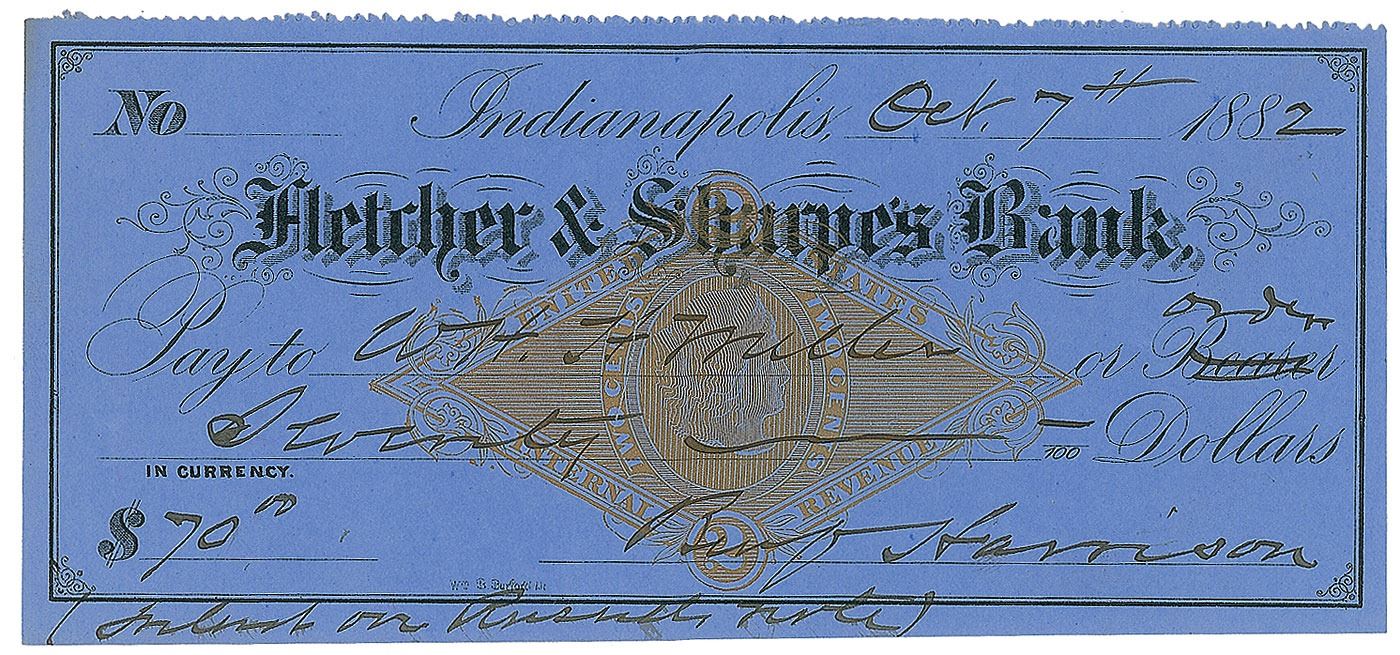 No Indianapolis, Oct. 7th 1882
Fletcher & Sharpe's Bank,
UNITED STATES
order
Pay to W. H. H. Miller or Bearer
TWO CENTS TWO CENTS
Seventy — 100 Dollars
IN CURRENCY.
INTERNAL REVENUE
$70 00 Benj Harrison
2
Wm B. Burford
(Interest on note)